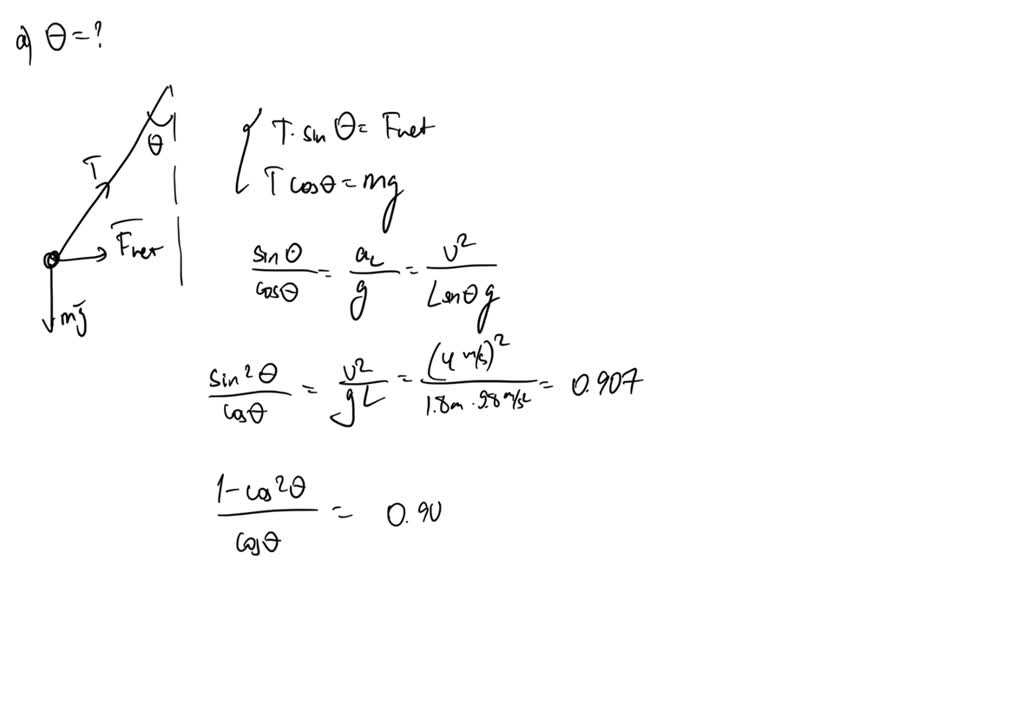 a) θ = ?
T · sin θ = Fnet
T cos θ = mg
θ
T
Fnet
mg
sin θ / cos θ = ac / g = v² / L sin θ g
sin² θ / cos θ = v² / gL = (4 m/s)² / 1.8m · 9.8 m/s² = 0.907
1 - cos² θ / cos θ = 0.90